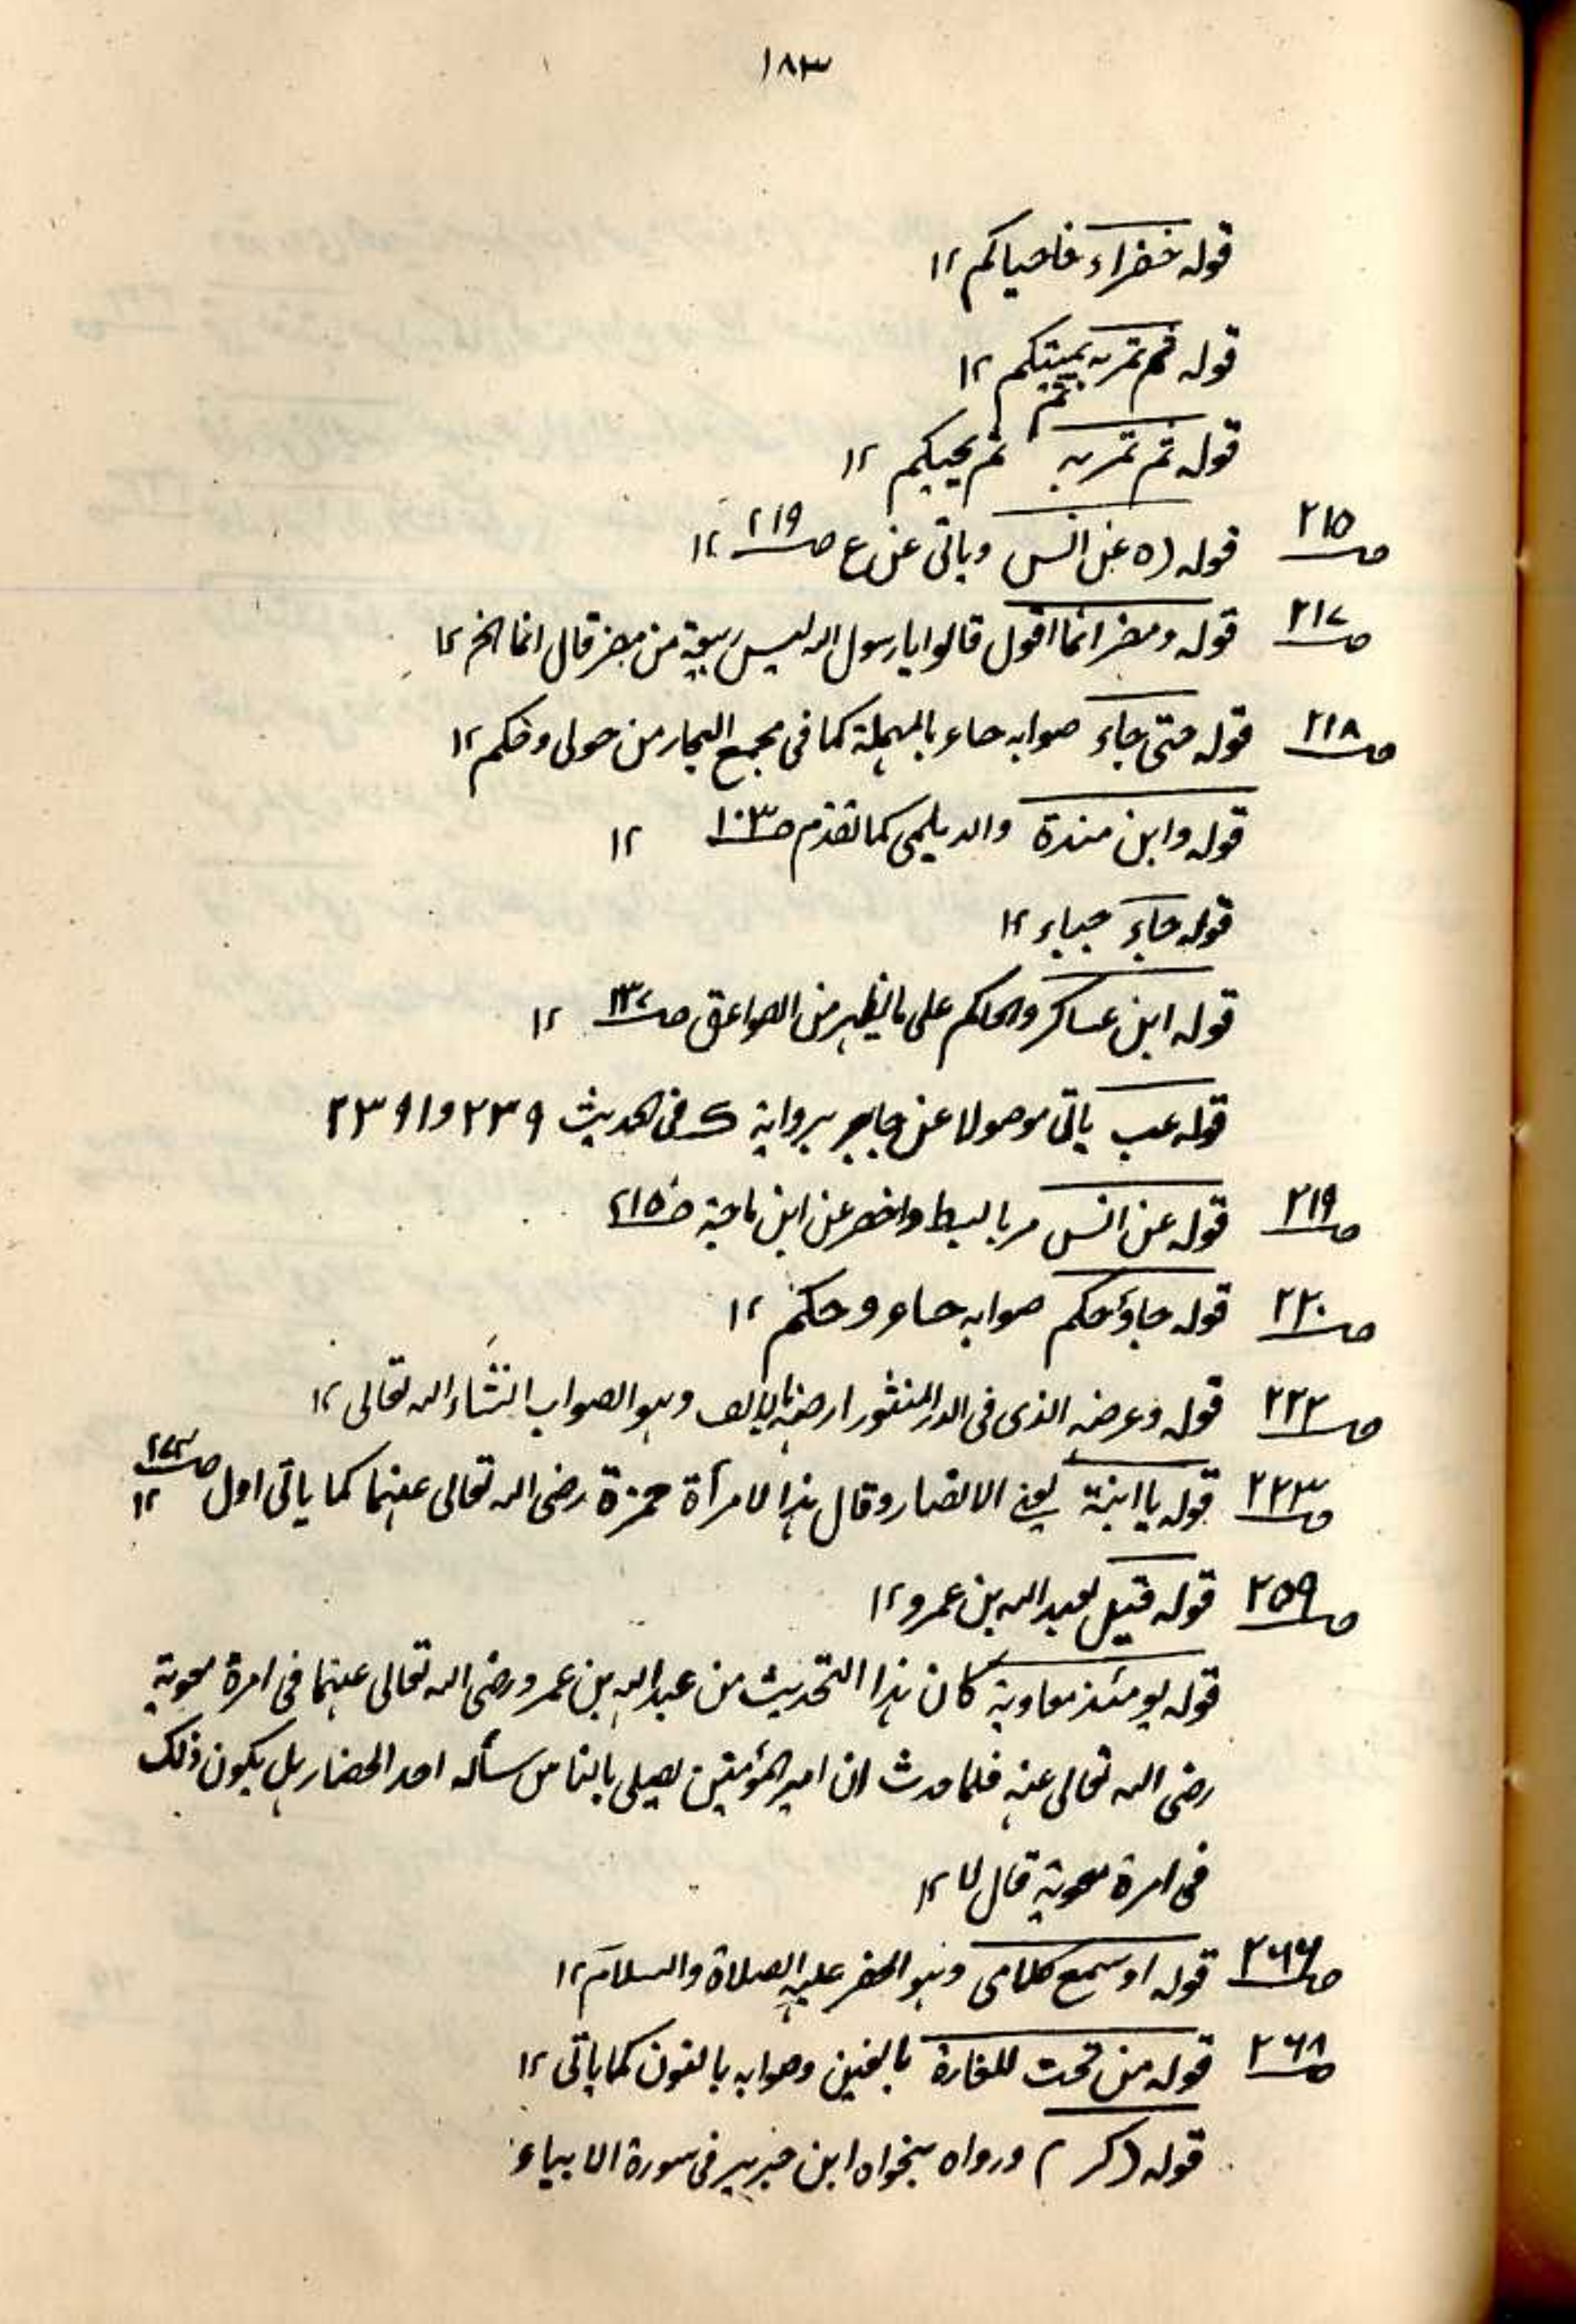 ١٨٣
قوله خضراء فاحياكم ١٢
قوله ثم تمر به يميتكم ١٢
قوله ثم تمر به ثم يحييكم ١٢
ص٢١٥ قوله (ه عن انس وياتى عن ع ص٢١٩ ١٢
ص٢١٧ قوله ومضر انما اقول قالوا يا رسول الله ليس ربيعة من مضر قال انما الخ ١٢
ص٢١٨ قوله حتى جاء صوابه حاء بالمهملة كما فى مجمع البحار من حولى وحكم ١٢
قوله وابن مندة والديلمى كما تقدم ص١٠٣ ١٢
قوله جاء ١٢
قوله ابن عساكر والحاكم على ما يظهر من الصواعق ص١٣٧ ١٢
قوله عب ياتى موصولا عن جابر برواية ك فى الحديث ٢٣٩ و ٢٣٩١
ص٢١٩ قوله عن انس مر بالبسط واخصر عن ابن ماجة ص٢١٥
ص٢٢٠ قوله جاؤحكم صوابه حاء وحكم ١٢
ص٢٢٢ قوله وعرضه الذى فى الدر المنثور ارضه بالالف وهو الصواب انشاء الله تعالى ١٢
ص٢٢٣ قوله يا ابنة يعنى الانصار وقال هذا لامرأة حمزة رضى الله تعالى عنهما كما ياتى اول ص٢٧٢ ١٢
ص٢٥٩ قوله قيل لعبد الله بن عمرو ١٢
قوله يومئذ معاوية كان هذا التحديث من عبد الله بن عمرو رضى الله تعالى عنهما فى امرة معوية
رضى الله تعالى عنه فلما حدث ان امير المؤمنين يصلى بالناس سأله احد الحضار هل يكون ذلك
فى امرة معوية قال لا ١٢
ص٢٦٦ قوله او سمع كلامى وهو الخضر عليه الصلاة والسلام ١٢
ص٢٦٨ قوله من تحت للغارة بالغين وصوابه بالنون كما ياتى ١٢
قوله (كر) ورواه بنحواه ابن جرير فى سورة الانبياء